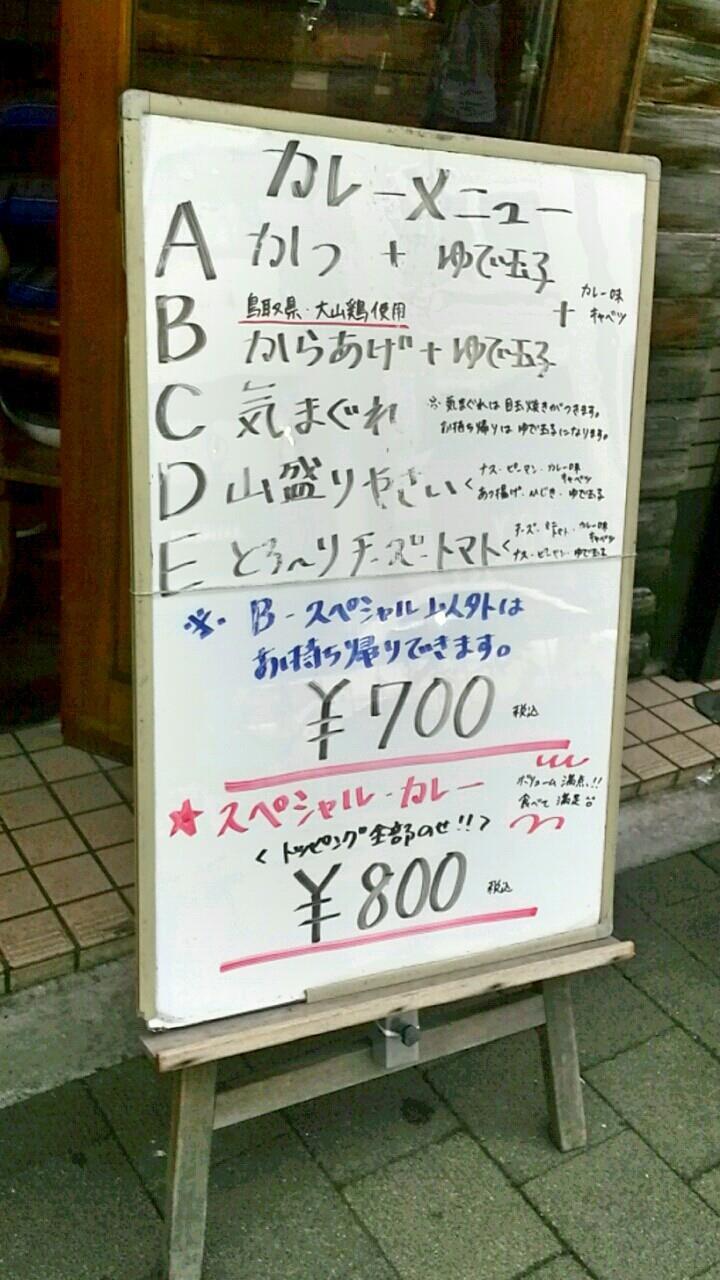 カレーメニュー
A かつ + ゆで玉子
+ カレー味
キャベツ
B 鳥取県・大山鶏使用
からあげ+ゆで玉子
C 気まぐれ
※気まぐれは目玉焼きがつきます。
お持ち帰りはゆで玉子になります。
D 山盛りやさい<
ナス・ピーマン・カレー味
キャベツ
あつ揚げ・ひじき・ゆで玉子
E とろ〜りチーズ・トマト<
チーズ・トマト・カレー味
キャベツ
ナス・ピーマン・ゆで玉子
※・B・スペシャル以外は
お持ち帰りできます。
¥700 税込
★スペシャル・カレー
ボリューム満点!!
食べて満足
<トッピング全部のせ!!>
¥800 税込